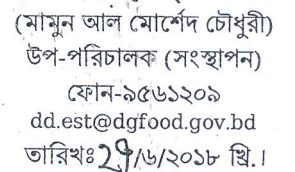 (মামুন আল মোর্শেদ চৌধুরী)
উপ-পরিচালক (সংস্থাপন)
ফোন-৯৫৬১২০৯
dd.est@dgfood.gov.bd
তারিখঃ ২৭/৬/২০১৮ খ্রি.।